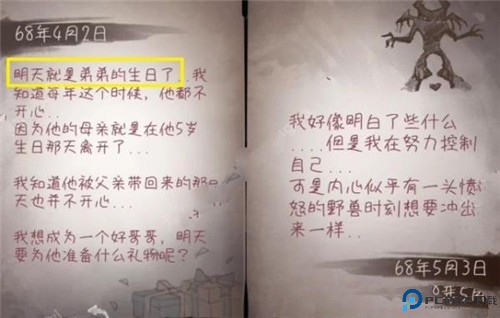 68年4月2日
明天就是弟弟的生日了..我
知道每年这个时候，他都不
开心..
因为他的母亲就是在他5岁
生日那天离开了...
我知道他被父亲带回来的那
天也并不开心...
我想成为一个好哥哥，明天
要为他准备什么礼物呢？
我好像明白了些什么
....但是我在努力控制
自己...
可是内心似乎有一头愤
怒的野兽时刻想要冲出
来一样..
68年5月3日